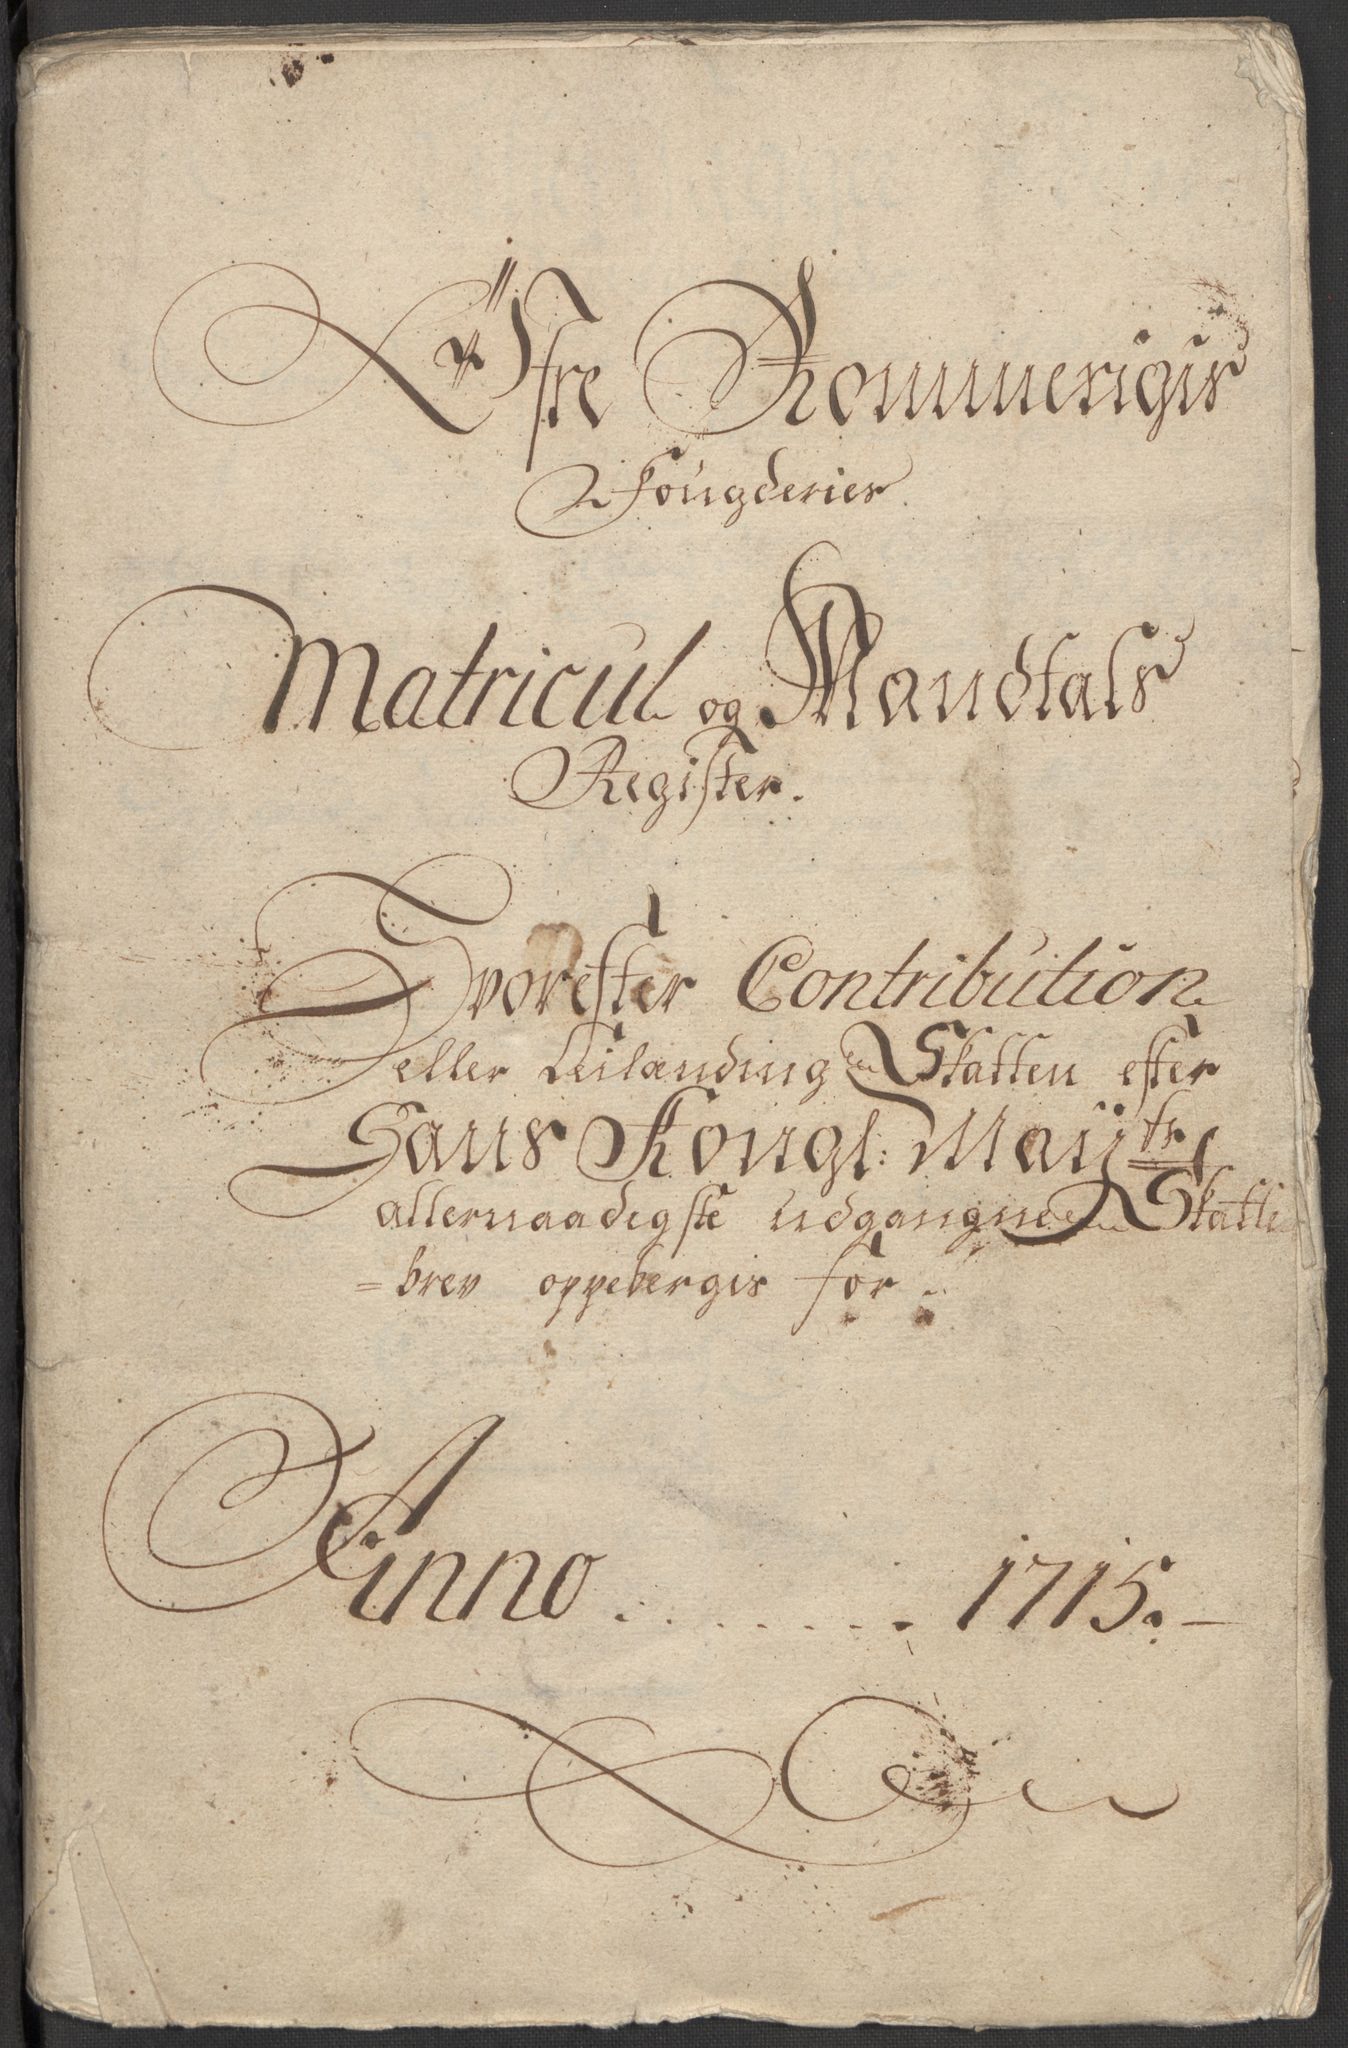 Øfre Rommerigis
Fougderies
Matricul og Mandtals
Register.
Hvorefter Contribution
eller Leilændings Skatten efter
Hans Kongl: Maÿ:ts
allernaadigste udgangne Skatte
=brev oppebergis for.
Anno ........ 1715.